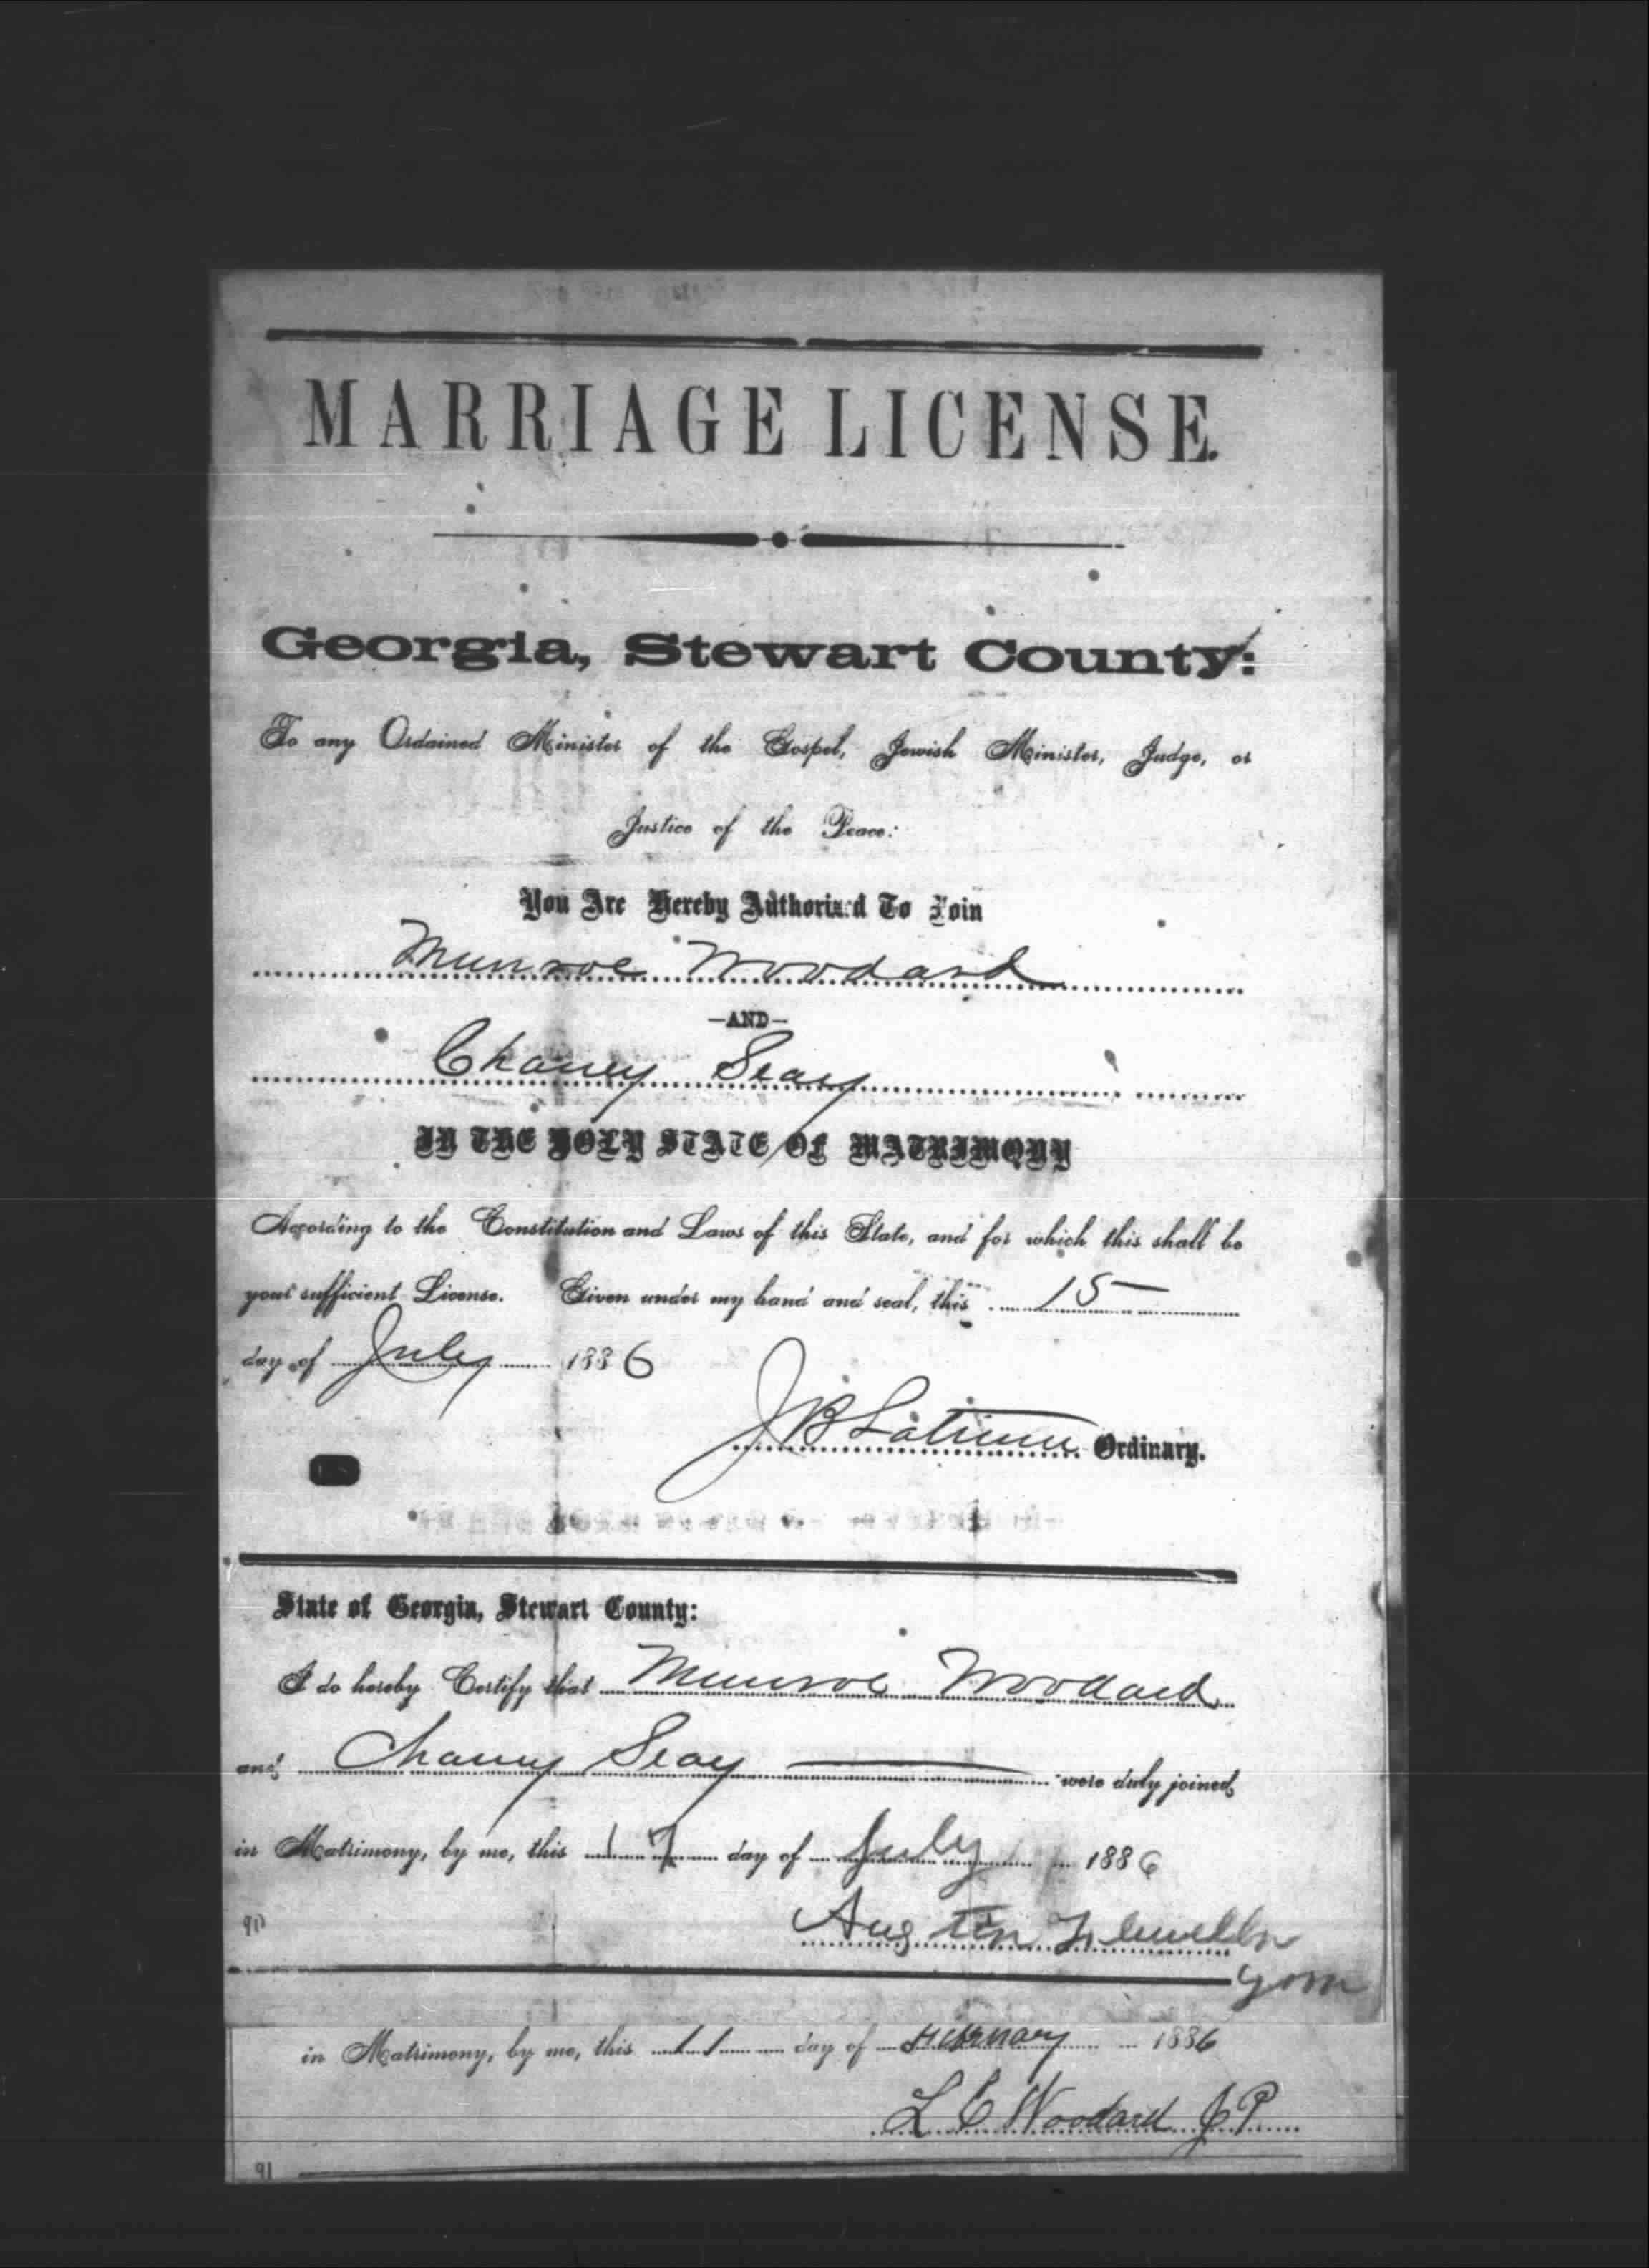 MARRIAGE LICENSE.
Georgia, Stewart County:
To any Ordained Minister of the Gospel, Jewish Minister, Judge, or
Justice of the Peace:
You Are Hereby Authorized To Join
Munroe Woodard
—AND—
Chaney Seay
IN THE HOLY STATE OF MATRIMONY
According to the Constitution and Laws of this State, and for which this shall be
your sufficient License. Given under my hand and seal, this 15
day of July 1886
J B Latimer Ordinary.
State of Georgia, Stewart County:
I do hereby Certify that Munroe Woodard
and Chaney Seay were duly joined
in Matrimony, by me, this 17 day of July 1886
Austin
in Matrimony, by me, this 11 day of February 1886
L C Woodard J P
91